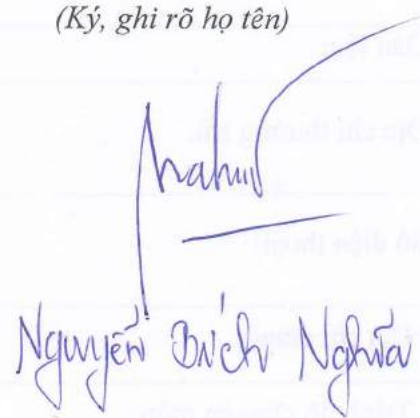 (Ký, ghi rõ họ tên)
Nguyễn Bích Nghĩa